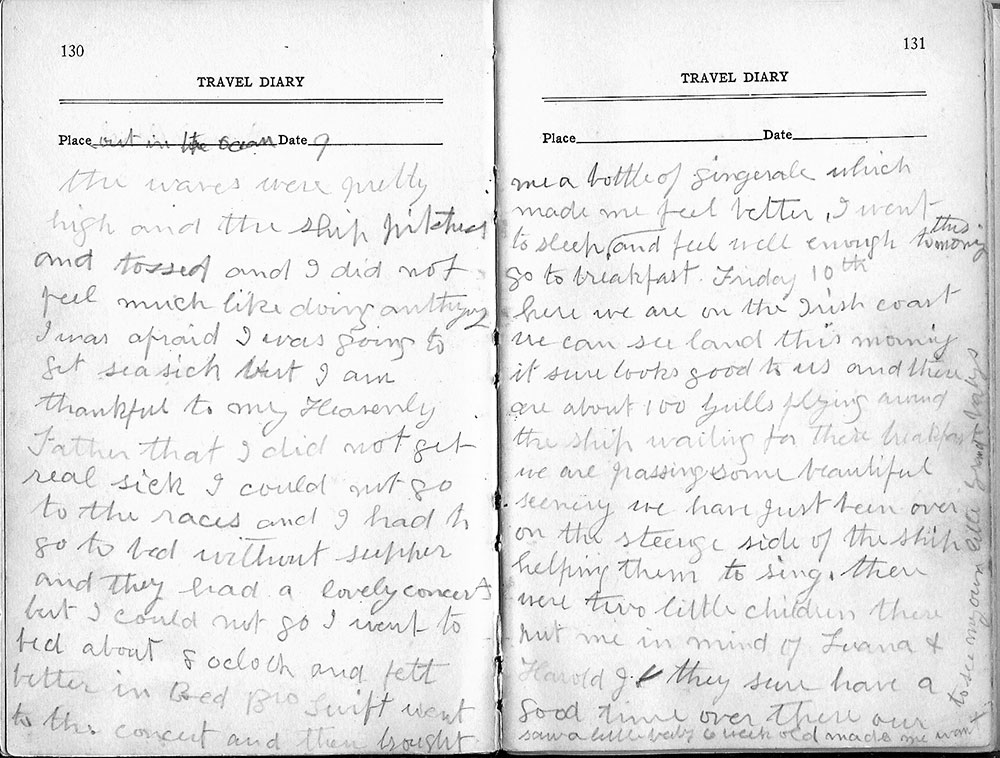 130
TRAVEL DIARY
Place out in the Ocean Date 9
the waves were pretty
high and the ship pitched
and tossed and I did not
feel much like doing anthying
I was afraid I was going to
get seasick but I am
thankful to my Heavenly
Father that I did not get
real sick I could not go
to the races and I had to
go to bed without supper
and they had a lovely concert
but I could not go I went to
bed about 8 oclock and felt
better in Bed Bro Swift went
to the concert and then brought
131
TRAVEL DIARY
Place Date
me a bottle of gingerale which
made me feel better, I went
to sleep, and feel well enough to this morning
go to breakfast. Friday 10th
here we are on the Irish coast
we can see land this morning
it sure looks good to us and there
are about 100 gulls flying around
the ship waiting for there breakfast
we are passing some beautiful
scenery we have just been over
on the steerage side of the ship
helping them to sing. there
were two little children there
put me in mind of Luana &
Harold J. they sure have a
good time over there our
saw a little baby 6 week old made me want
to see my own little grand babys